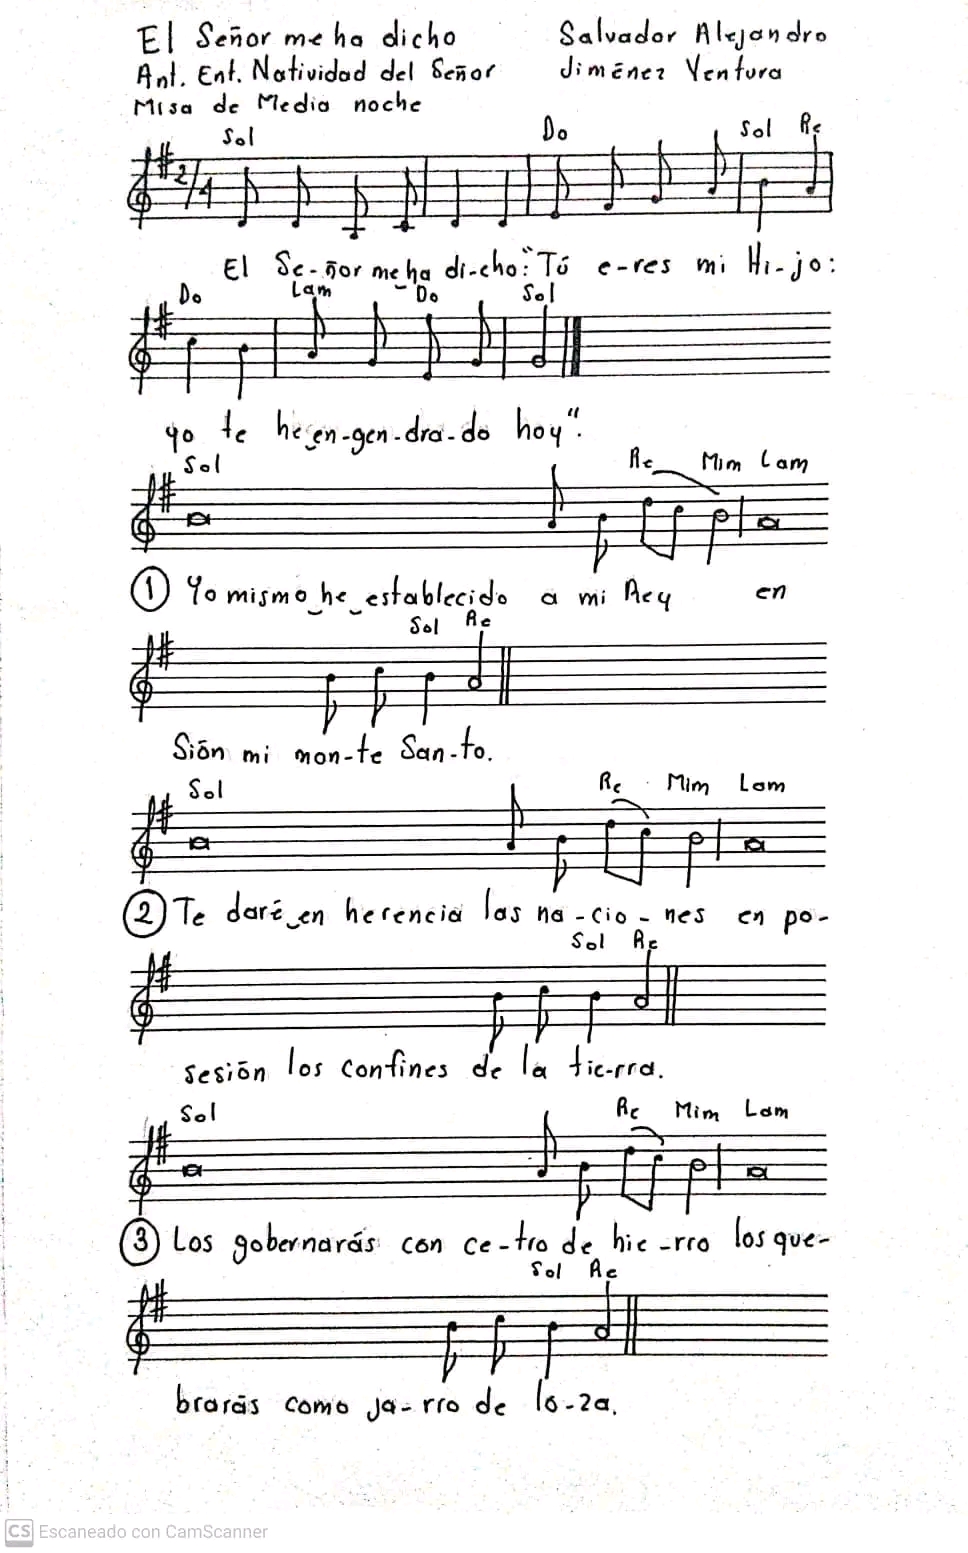 El Señor me ha dicho Salvador Alejandro
Ant. Ent. Natividad del Señor Jiménez Ventura
Misa de Media noche
Sol Do Sol Re
2/4
El Se-ñor me ha di-cho: "Tú e-res mi Hi-jo:
Do Lam Do Sol
yo te he en-gen-dra-do hoy".
Sol Re Mim Lam
1 Yo mismo he establecido a mi Rey en
Sol Re
Sión mi mon-te San-to.
Sol Re Mim Lam
2 Te daré en herencia las na-cio-nes en po-
Sol Re
sesión los confines de la tie-rra.
Sol Re Mim Lam
3 Los gobernarás con ce-tro de hie-rro los que-
Sol Re
brarás como ja-rro de lo-za.
CS Escaneado con CamScanner